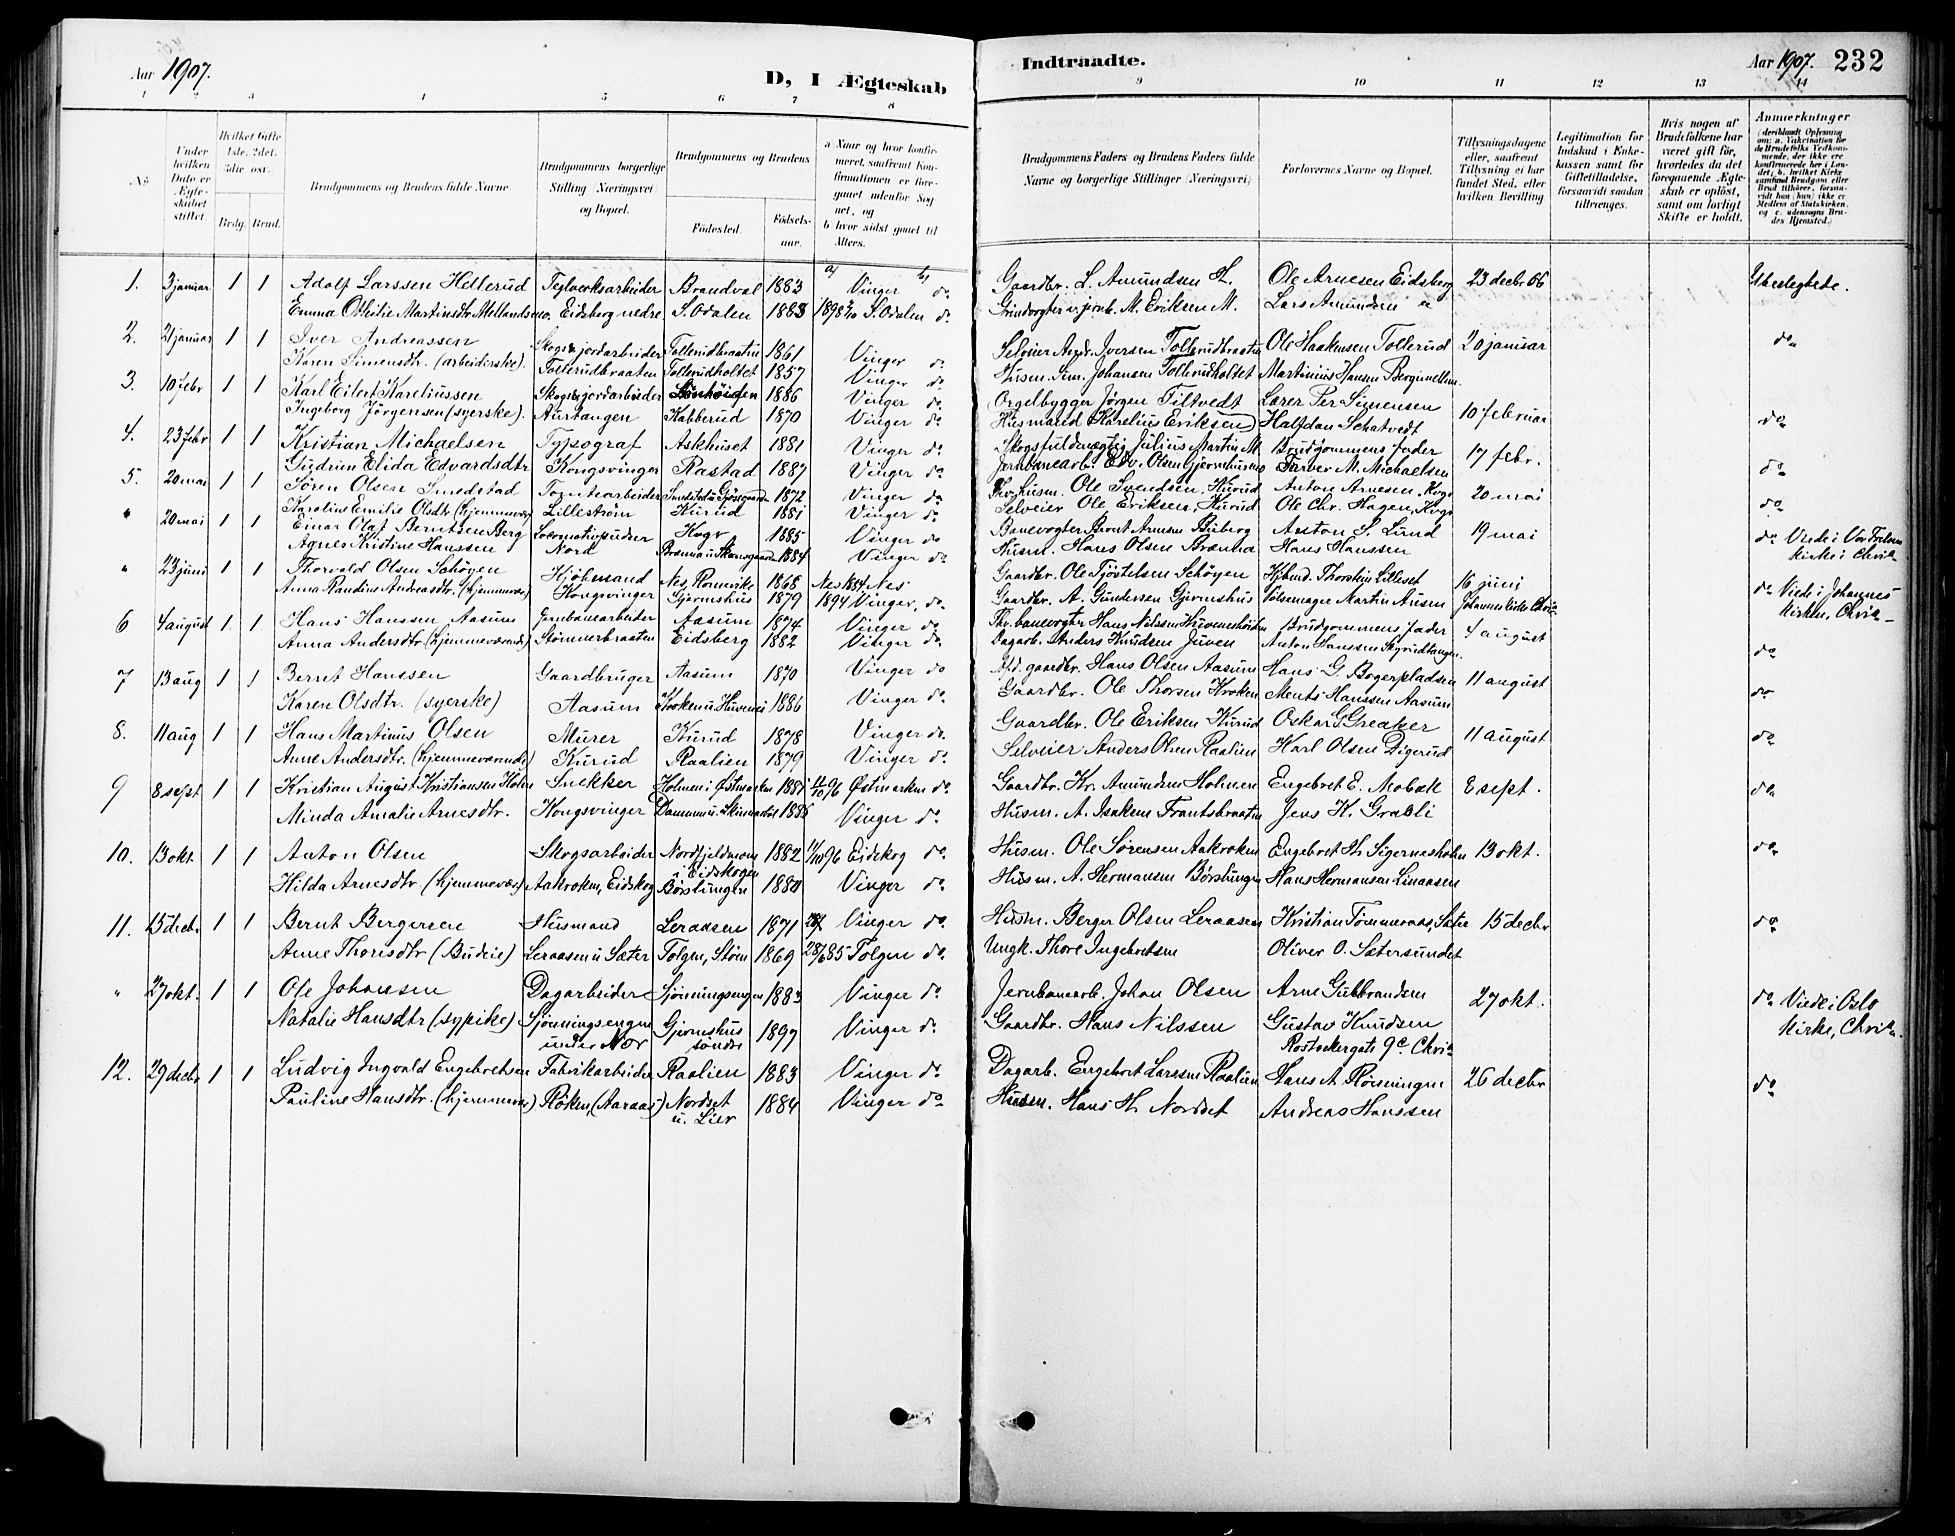 Aar 1907.
D, I Ægteskab
Indtraadte.
Aar 1907. 232
1 2 3 4 5 6 7 8 9 10 11 12 13 14
No
Under hvilken Dato er Ægteskabet stiftet.
Hvilket Gifte 1ste, 2det, 3die osv.
Brdg. Brud.
Brudgommens og Brudens fulde Navne
Brudgommens borgerlige Stilling Næringsvei og Bopæl.
Brudgommens og Brudens
Födested.
Födsels-aar.
a Naar og hvor konfirmeret, saafremt Konfirmationen er foregaaet udenför Sognet, og
b hvor sidst gaaet til Alters.
Brudgommens Faders og Brudens Faders fulde Navne og borgerlige Stillinger (Næringsvei)
Forlovernes Navne og Bopæl.
Tillysningsdagene eller, saafremt Tillysning ei har fundet Sted, efter hvilken Bevilling
Legitimation for Indskud i Enkekassen samt for Giftetilladelse, forsaavidt saadan tiltrænges.
Hvis nogen af Brudefolkene har været gift för, hvorledes da det foregaaende Ægteskab er oplöst, samt om lovligt Skifte er holdt.
Anmærkninger
a) b)
1. 3 januar 1 1 Adolf Larssen Hellerud Teglverksarbeider Brandval 1883 Vinger do Gaardbr. L. Amundsen H. Ole Arnesen Eidsberg 23 decbr 06 Ubeslegtede.
Emma Otteilie Martinsdtr Mellandsmo. Eidsberg nedre S. Odalen 1883 1898 S. Odalen do Grindvogter v. jernb. M. Eriksen M. Lars Amundsen
2. 21 januar 1 1 Iver Andreassen Skogs & jordarbeider Tollerudbraaten 1861 Vinger do Selveier Andr. Iversen Tollerudbraaten Ole Haakensen Tollerud 20 januar do
Karen Simensdtr. (arbeiderske). Tollerudbraaten Tollerudholtet 1857 Vinger do Husm. Sim. Johansen Tollerudholtet Martinius Hansen Berg
3. 10 febr 1 1 Karl Eilert Kareliussen Skogs & jordarbeider 1886 Vinger do Orgelbygger Jörgen Tiltvedt Lærer Per Simensen 10 februar do
Ingeborg Jörgensen (syerske). Aurtangen Kabberud 1870 Vinger do Husmand Karelius Eriksen Halfdan Schatvedt
4. 23 febr 1 1 Kristian Michaelsen Typograf Askhuset 1881 Vinger do Skogsfuldmægtig Julius Martin M. Brudgommens fader 17 febr. do
Gudrun Elida Edvardsdtr Kongsvinger Rastad 1887 Vinger do Jernbanearb. Edv. Olsen Gjermshus Farver M. Michaelsen
5. 20 mai 1 1 Sören Olsen Smedstad Tomtearbeider 1872 Vinger do husm. Ole Svendsen, Kurud Anton Arnesen, Kogr 20 mai do
Karoline Emilie Olsdtr (hjemmevær) Lilleström Kurud 1881 Vinger do Selveier Ole Eriksen, Kurud Ole Chr. Hagen, Kogr
" 20 mai 1 1 Einar Olaf Berntsen Berg Lokomotivpudser Kogr 1885 Vinger do Banevogter Bernt Arnesen Buberg Anton S. Lund 19 mai do Viede i Vor Frelsers
Agnes Kristine Hanssen Nord 1884 Vinger do Husm. Hans Olsen Brænna Hans Hanssen kirke i Chria
" 23 juni 1 1 Thorvald Olsen Schöyen Kjöbmand Nes, Romerike 1868 Nes 1884 Nes Gaardbr. Ole Tjöstelsen Schöyen Kjbmd. Thorstein Lilleset 16 juni do Viede i Johannes
Anna Randine Andreasdtr. (hjemmevær) Kongsvinger Gjermshus 1879 1894 Vinger, do Gaardbr. A. Gundersen Gjermshus Pölsemager Martin Ausen Johannes kirke Chria Kirke, Chria
6 4 august 1 1 Hans Hanssen Aasum Jernbanearbeider Aasum 1874 Vinger do Fhv. banevogter Hans Nilssen Brudgommens fader 4 august do
Anna Andersdtr (hjemmeværende) Stömnerbraaten Eidsberg 1882 Vinger do Dagarb. Anders Knudsen Juven Anton Hanssen Skyrudtangen.
7 13 aug 1 1 Bernt Hanssen Gaardbruger Aasum 1870 Vinger do Afd. gaardbr. Hans Olsen Aasum Hans G. Bogerpladsen 11 august do
Karen Olsdtr. (syerske) Aasum 1886 Vinger do Gaardbr. Ole Thorsen Kroken Ments Hanssen Aasum
8. 11 aug 1 1 Hans Martinus Olsen Murer Kurud 1878 Vinger do Gaardbr. Ole Eriksen Kurud Oskar G. Greaker 11 august do
Anne Andersdtr. (hjemmeværende) Kurud Raalien 1879 Vinger do Selveier Anders Olsen Raalien Karl Olsen Digerud
9 8 sept 1 1 Kristian August Kristiansen Holm Snekker Holmen i Östmarken 1881 96 Östmarken do Gaardbr. Kr. Amundsen Holmen Engebret E. Mobæk 8 sept. do
Minda Amalie Arnesdtr. Kongsvinger Dammen u. Skinnarbøl 1886 Vinger do Husm. A. Isaksen Frantsbraaten Jens K. Grasli
10. 13 okt 1 1 Anton Olsen Skogsarbeider Nordfjeldmoen i Eidskogen 1882 96 Eidskog do Husm. Ole Sörensen Aakroken Engebret H. Sigernesholm 13 okt. do
Hilda Arnesdtr (hjemmevær) Aakroken, Eidskog Börslungen 1880 Vinger do Husm. A. Hermansen Börslungen Hans Hermansen Linaasen
11. 15 decbr 1 1 Bernt Bergersen Husmand Leraasen 1871 Vinger do Husm. Berger Olsen Leraasen Kristian Tömmeraas, Sæter 15 decbr do
Anne Thoresdtr (Budeie) Leraasen u Sæter Tolgen, Stöen 1869 28/6 85 Tolgen do Ungk. Thore Ingebretsen Oliver O. Sætersundet
" 27 okt. 1 1 Ole Johansen Dagarbeider Sjönningsengen 1883 Vinger do Jernbanearb. Johan Olsen Arne Gubbrandsen 27 okt. do Viede i Oslo
Natalie Hansdtr (sypike) Sjönningsengen under Nor Gjermshus söndre 1897 Vinger do Gaardbr. Hans Nilssen Gustav Knudsen Rostockergate 9c Chria Kirke, Chria.
12. 29 decbr 1 1 Ludvig Ingvald Engebretsen Fabrikarbeider Raalien 1883 Vinger do Dagarb. Engebret Larssen Raalien Hans A. Rönningen 26 decbr do
Pauline Hansdtr. (hjemmevær) Röken (Aaraas) Nordset u. Lier 1884 Vinger do Husm. Hans H. Nordset Andreas Hanssen